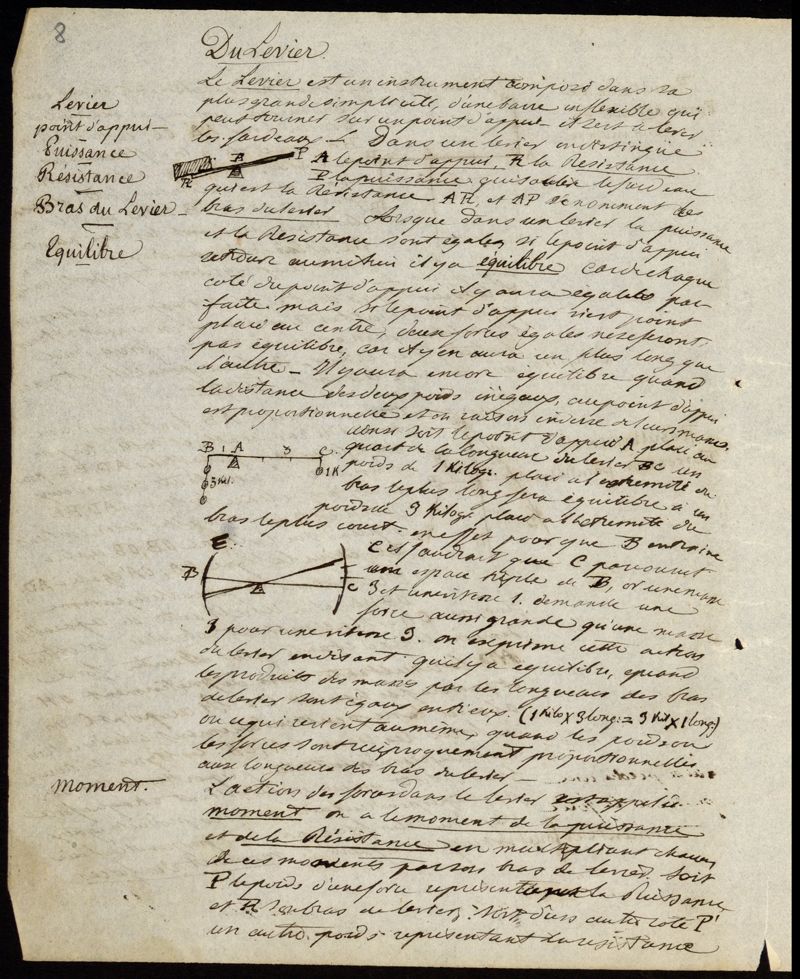 8
Du Levier.
Le Levier est un instrument composé dans sa
plus grande simplicité, d'une barre inflexible qui
peut tourner sur un point d'appui et sert à lever
les fardeaux — Dans un levier on distingue
A le point d'appui, R la Résistance
P la puissance qui le fardeau
qui est la Résistance AR, et AP se nomment des
bras du levier Lorsque dans un levier la puissance
et la Résistance sont égales, si le point d'appui
au milieu il y a équilibre car de chaque
coté du point d'appui il y aura égalité par-
faite. mais si le point d'appui n'est point
placé au centre, deux forces égales ne seront
pas équilibre, car il y en aura un plus long que
l'autre — Il y aura encore équilibre quand
la distance des deux poids inégaux, au point d'appui
est proportionnelle et en raison inverse de leurs masses.
Levier
point d'appui —
Puissance
Résistance
Bras du Levier —
Equilibre
A P
R
ainsi soit le point d'appui A placé au
quart de la longueur du levier BC un
poids de 1 Kilog. placé à l'extremité du
bras le plus long sera équilibre à un
poids de 3 Kilog. placé à l'extremité du
bras le plus court. en effet pour que B entraine
B 1 A 3 C
3 Kil. 1 K
C il faudrait que C parcourut
un espace triple de B, or une masse
3 et une vitesse 1. demande une
force aussi grande qu'une masse
E
B A C
3 pour une vitesse 3. on exprime cette action
du levier en disant qu'il y a équilibre, quand
les produits des masses par les longueurs des bras
de levier sont égaux entr'eux. (1 Kilo x 3 long: = 3 Kil x 1 long:)
ou ce qui revient au même, quand les poids ou
les forces sont réciproquement proportionnelles
aux longueurs des bras du levier —
moment.
L'action des forces dans le levier est appelée
moment on a le moment de la puissance
et de la Résistance en multipliant chacun
de ces moments par son bras de levier. Soit
P le poids d'une force représentant la Puissance
et R son bras de levier; Soit d'un autre coté P'
un autre poids représentant la résistance